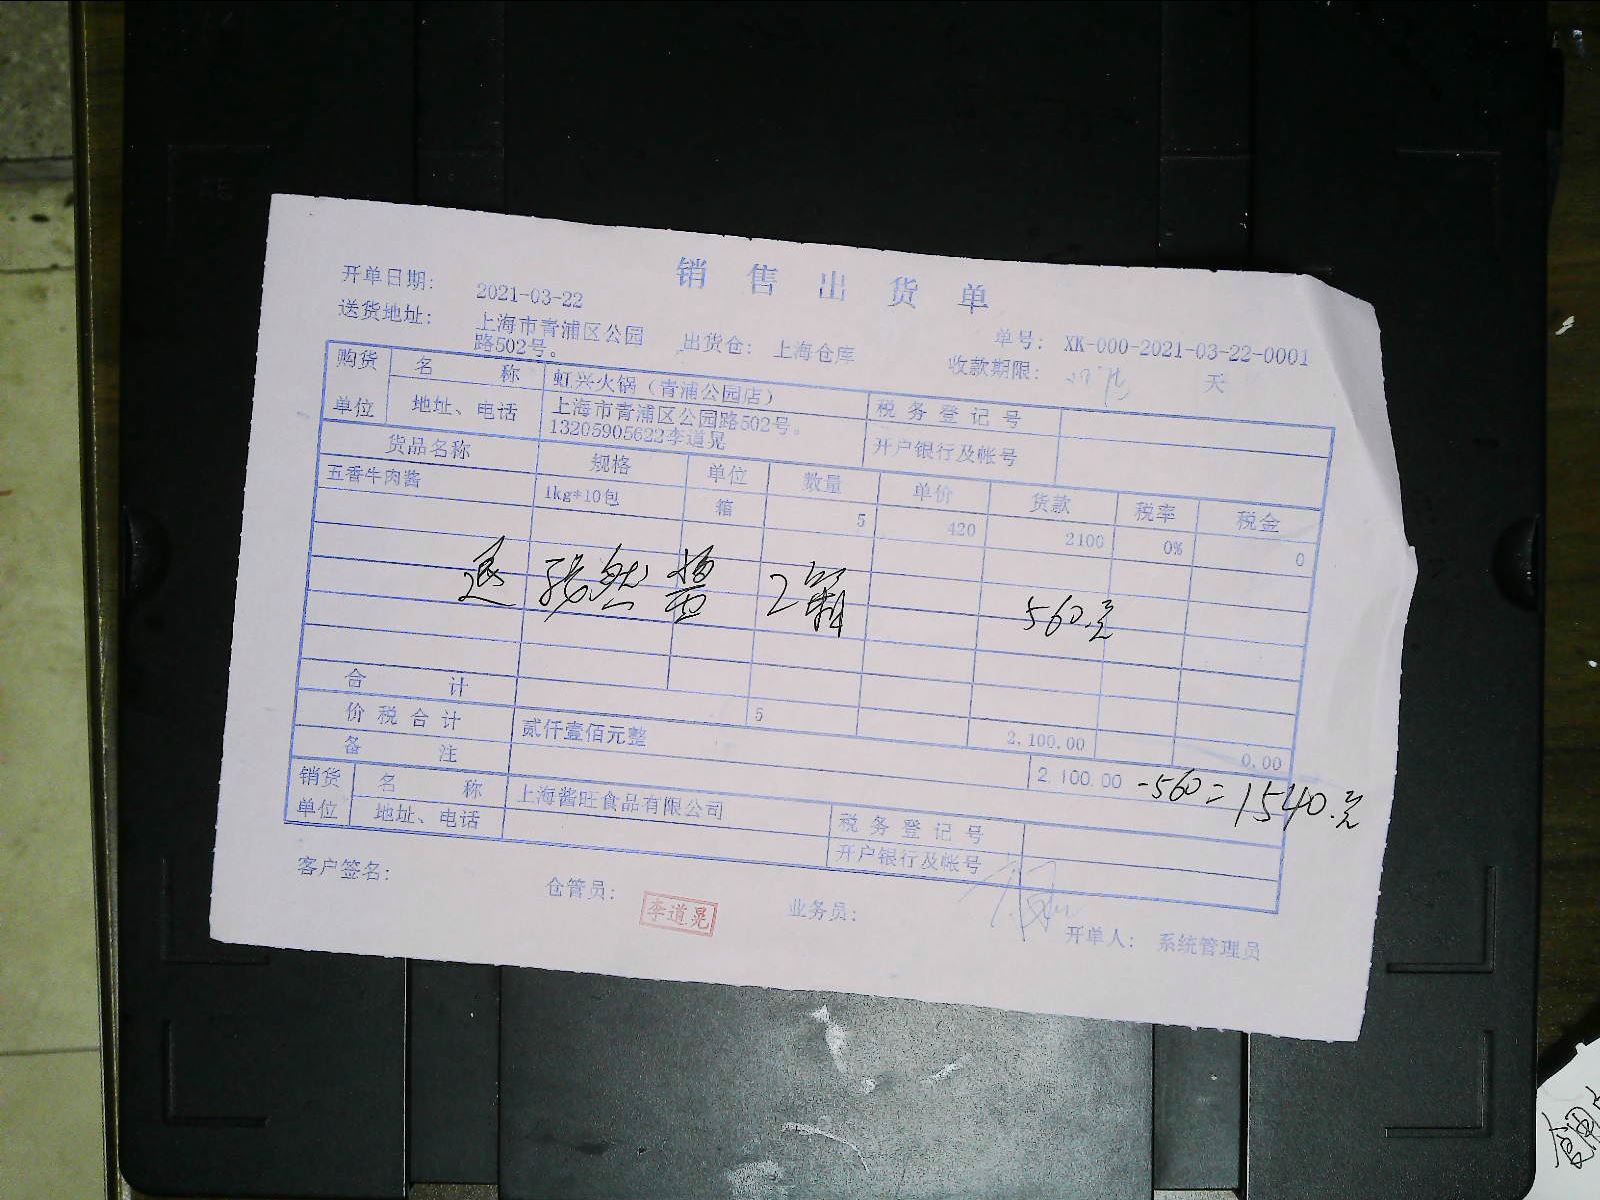 销售出货单
开单日期： 2021-03-22
送货地址： 上海市青浦区公园
路502号。
出货仓： 上海仓库
单号： XK-000-2021-03-22-0001
收款期限： 天
购货单位 名称 虹兴火锅（青浦公园店） 税务登记号
地址、电话 上海市青浦区公园路502号。
13205905622李道晃 开户银行及帐号
货品名称 规格 单位 数量 单价 货款 税率 税金
五香牛肉酱 1kg*10包 箱 5 420 2100 0% 0
退 然酱 2箱 560.元
合计 5 2,100.00 0.00
价税合计 贰仟壹佰元整 2,100.00 -560=1540.元
备注
销货单位 名称 上海酱旺食品有限公司 税务登记号
地址、电话 开户银行及帐号
客户签名： 仓管员： 李道晃 业务员： 开单人： 系统管理员